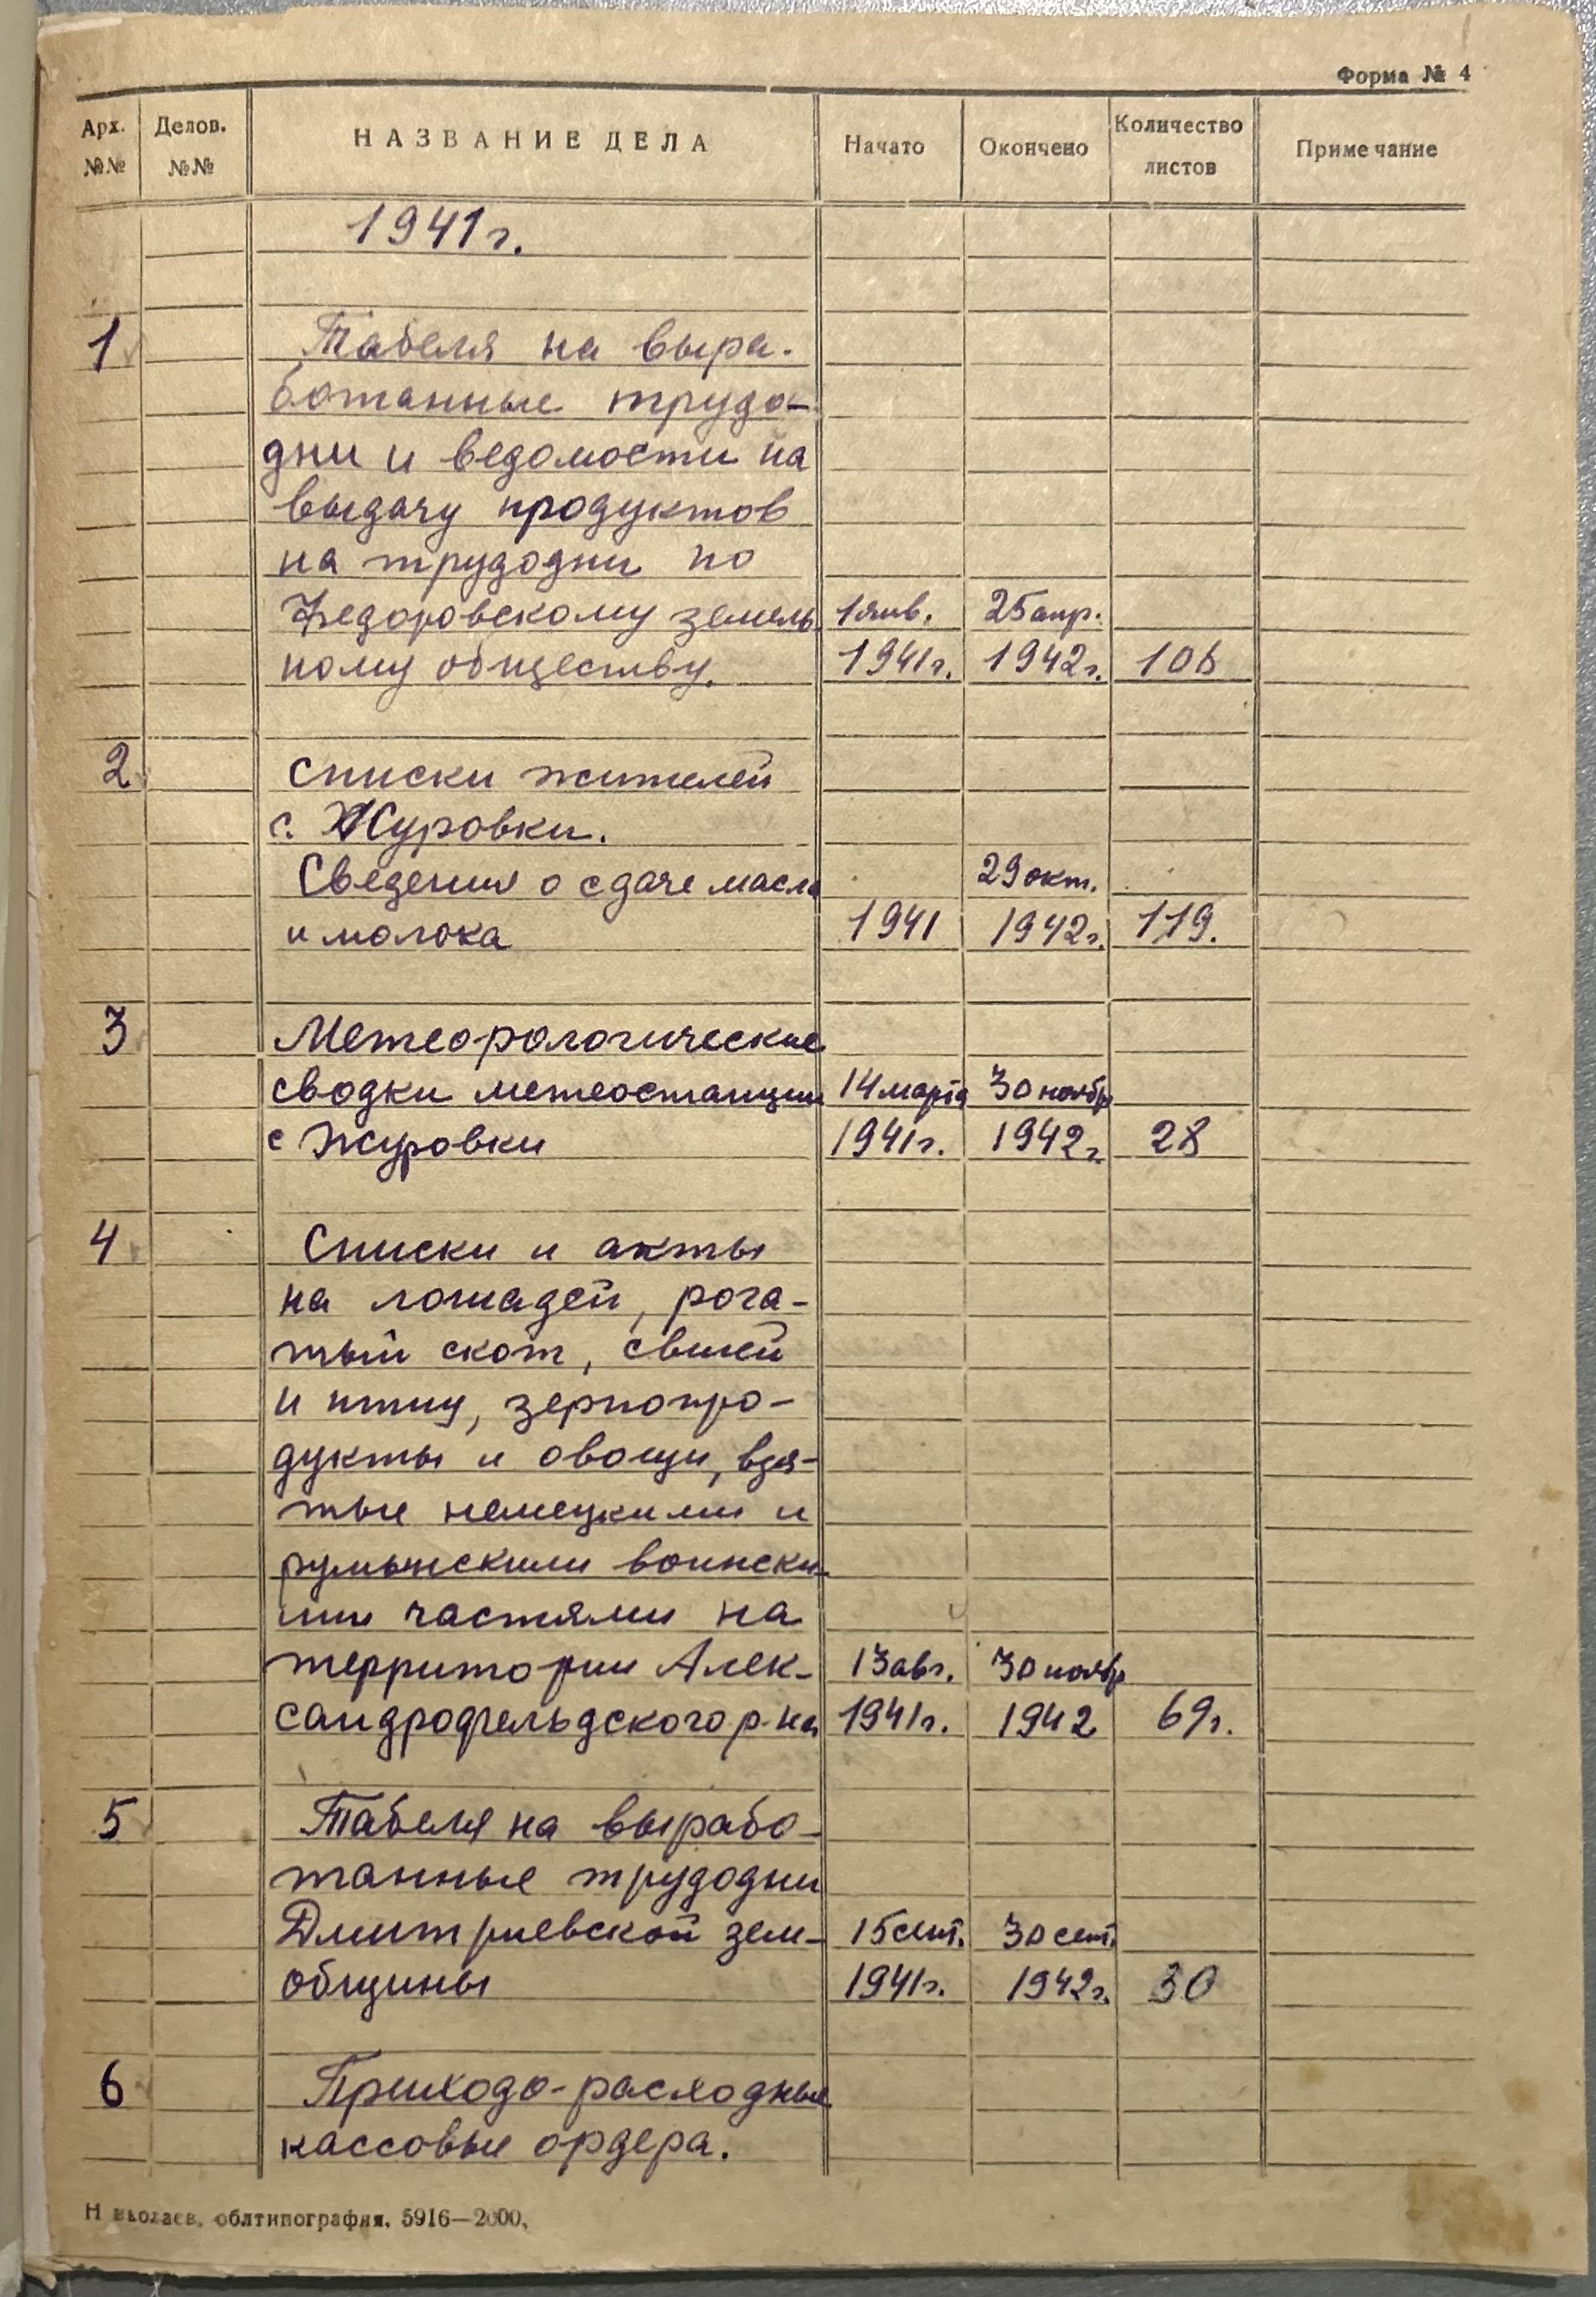 Форма № 4
Арх. №№ Делов. №№ НАЗВАНИЕ ДЕЛА Начато Окончено Количество листов Примечание
1941 г.
1 Табеля на выра-
ботанные трудо-
дни и ведомости на
выдачу продуктов
на трудодни по
Федоровскому земель- 1 янв. 25 апр.
ному обществу. 1941 г. 1942 г. 106
2 Списки жителей
с. Журовки.
Сведения о сдаче масла 29 окт.
и молока 1941 1942 г. 119.
3 Метеорологические
сводки метеостанции 14 марта 30 ноябр
с Журовки 1941 г. 1942 г. 28
4 Списки и акты
на лошадей, рога-
тый скот, свиней
и птицу, зернопро-
дукты и овощи, взя-
тые немецкими и
румынскими воински-
ми частями на
территории Алек- 13 авг. 30 ноябр
сандрофельдского р-на 1941 г. 1942 69 г.
5 Табеля на вырабо-
танные трудодни
Дмитриевской зем- 15 сент. 30 сент.
общины 1941 г. 1942 г. 30
6 Приходо-расходные
кассовые ордера.
Николаев, облтипография, 5916—2000,